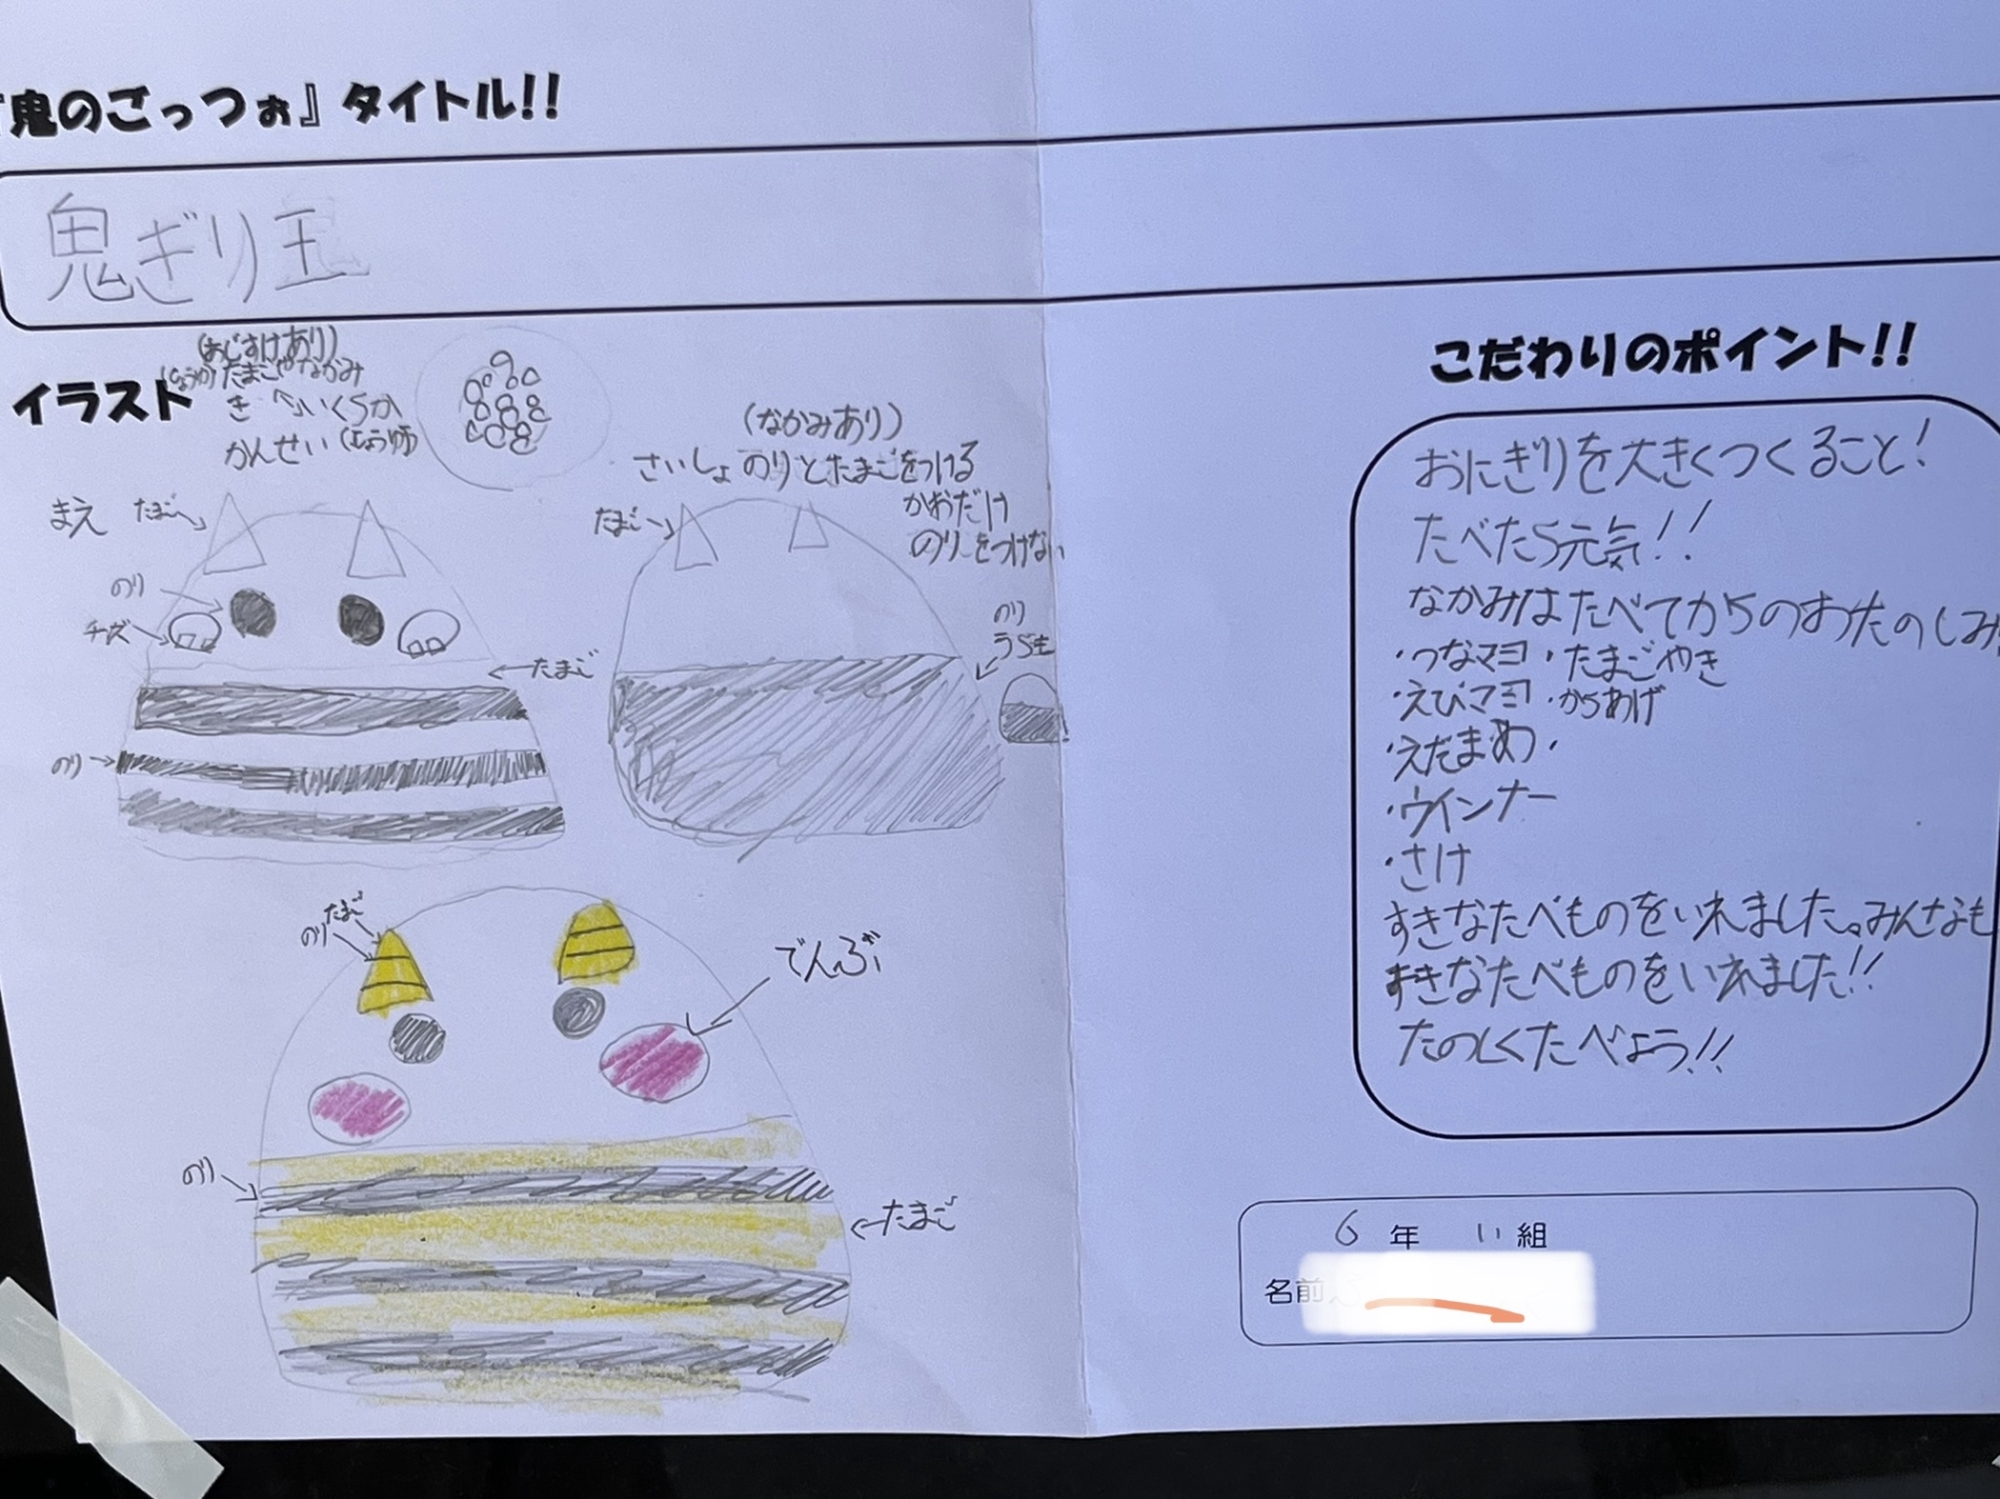 『鬼のごっつぉ』タイトル!!
鬼ぎり王
イラスト
(あじすけあり)
たまごやなかみ
いくらか
かんせい
(なかみあり)
さいしょ のりとたまごをつける
かおだけ
のりをつけない
まえ
たまご
のり
チーズ
たまご
のり
たまご
のり
うら生
たまご
のり
でんぶ
のり
たまご
こだわりのポイント!!
おにぎりを大きくつくること!
たべたら元気!!
なかみはたべてからのおたのしみ!
・つなマヨ・たまごやき
・えびマヨ・からあげ
・えだまめ・
・ウインナー
・さけ
すきなたべものをいれました。みんなも
すきなたべものをいれました!!
たのしくたべよう!!
6 年 い 組
名前